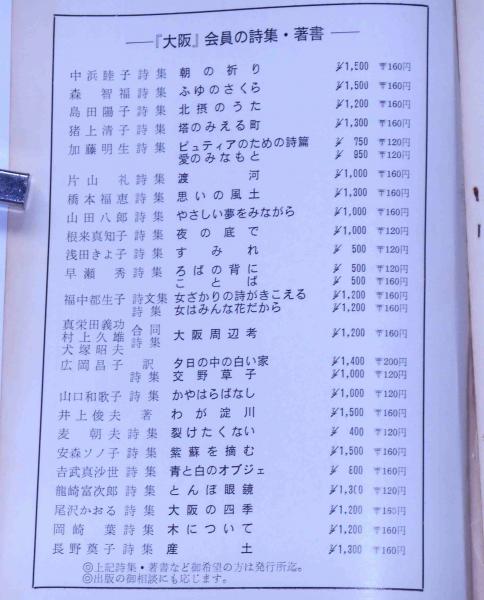 『大阪』会員の詩集・著書
中浜睦子詩集 朝の祈り ¥1,500 〒160円
森智福詩集 ふゆのさくら ¥1,500 〒160円
島田陽子詩集 北摂のうた ¥1,200 〒160円
猪上清子詩集 塔のみえる町 ¥1,300 〒160円
加藤明生詩集 ピュティアのための詩篇 ¥750 〒120円
愛のみなもと ¥950 〒120円
片山礼詩集 渡河 ¥1,000 〒160円
橋本福恵詩集 思いの風土 ¥1,300 〒160円
山田八郎詩集 やさしい夢をみながら ¥1,000 〒160円
根来真知子詩集 夜の底で ¥1,000 〒160円
浅田きよ子詩集 すみれ ¥500 〒120円
早瀬秀詩集 ろばの背に ¥500 〒120円
ことば ¥500 〒160円
福中都生子詩文集 女ざかりの詩がきこえる ¥1,200 〒160円
詩集 女はみんな花だから ¥1,200 〒160円
真栄田義功
村上久雄 合同詩集 大阪周辺考 ¥1,200 〒160円
犬塚昭夫
広岡昌子訳 夕日の中の白い家 ¥1,400 〒200円
詩集 交野草子 ¥1,000 〒120円
山口和歌子詩集 かやはらばなし ¥1,000 〒120円
井上俊夫著 わが淀川 ¥1,500 〒160円
麦朝夫詩集 裂けたくない ¥400 〒120円
安森ソノ子詩集 紫蘇を摘む ¥1,500 〒160円
吉武真沙世詩集 青と白のオブジェ ¥800 〒160円
龍崎富次郎詩集 とんぼ眼鏡 ¥1,300 〒120円
尾沢かおる詩集 大阪の四季 ¥1,200 〒160円
岡崎葉詩集 木について ¥1,200 〒160円
長野莫子詩集 産土 ¥1,300 〒160円
◎上記詩集・著書など御希望の方は発行所迄。
◎出版の御相談にも応じます。